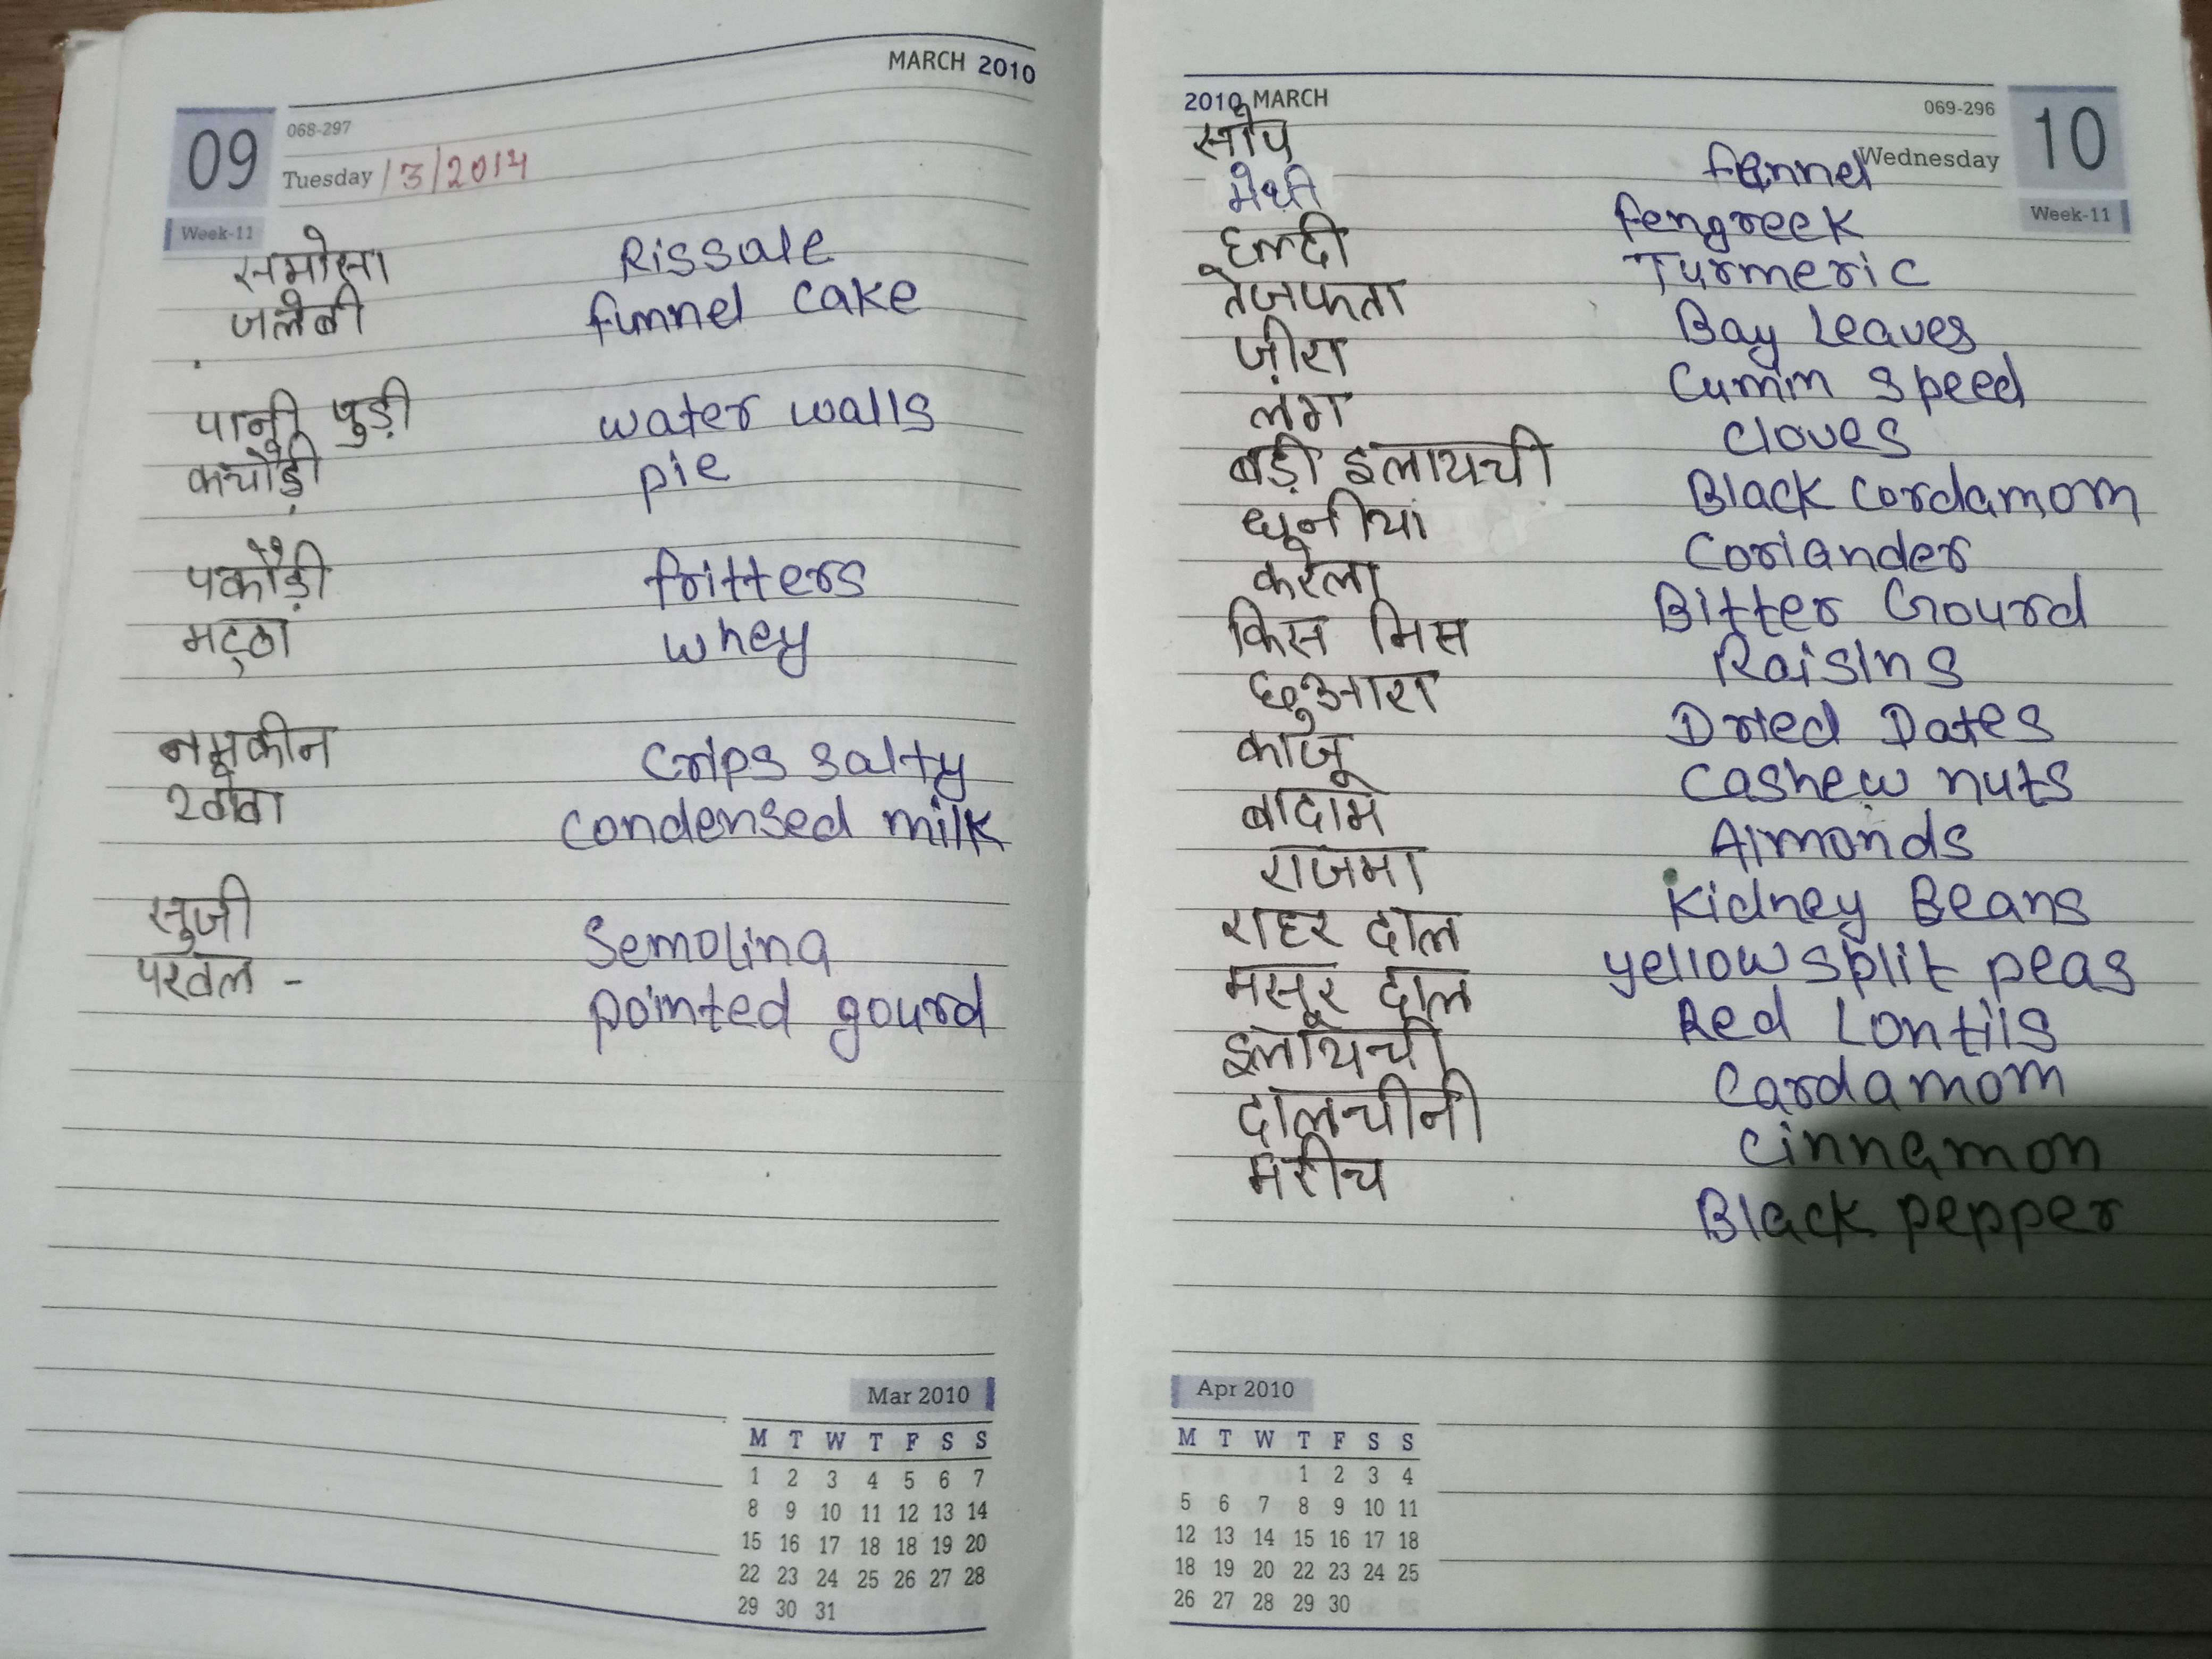 MARCH 2010
09
068-297
Tuesday /3/2014
Week-11
समोसा Rissole
जलेबी funnel cake
पानी पुड़ी water walls
कचौड़ी pie
पकौड़ी fritters
मट्ठा whey
नमकीन Crips salty
खोवा condensed milk
सुजी Semolina
परवल - pointed gourd
Mar 2010
M T W T F S S
1 2 3 4 5 6 7
8 9 10 11 12 13 14
15 16 17 18 18 19 20
22 23 24 25 26 27 28
29 30 31
2010 MARCH
069-296
10
Wednesday
Week-11
सोप fennel
मेथी fengreek
हल्दी Turmeric
तेजपता Bay Leaves
ज़ीरा Cumin speed
लंग Cloves
बड़ी इलायची Black Cordamom
धनीयां Coriander
करेला Bitter Gourd
किस मिस Raisins
छुआरा Dried Dates
काजू Cashew nuts
बादाम Almonds
राजमा Kidney Beans
राहर दाल yellow split peas
मसूर दाल Red Lontils
इलायची Cardamom
दालचीनी Cinnamon
मरीच Black pepper
Apr 2010
M T W T F S S
1 2 3 4
5 6 7 8 9 10 11
12 13 14 15 16 17 18
18 19 20 22 23 24 25
26 27 28 29 30